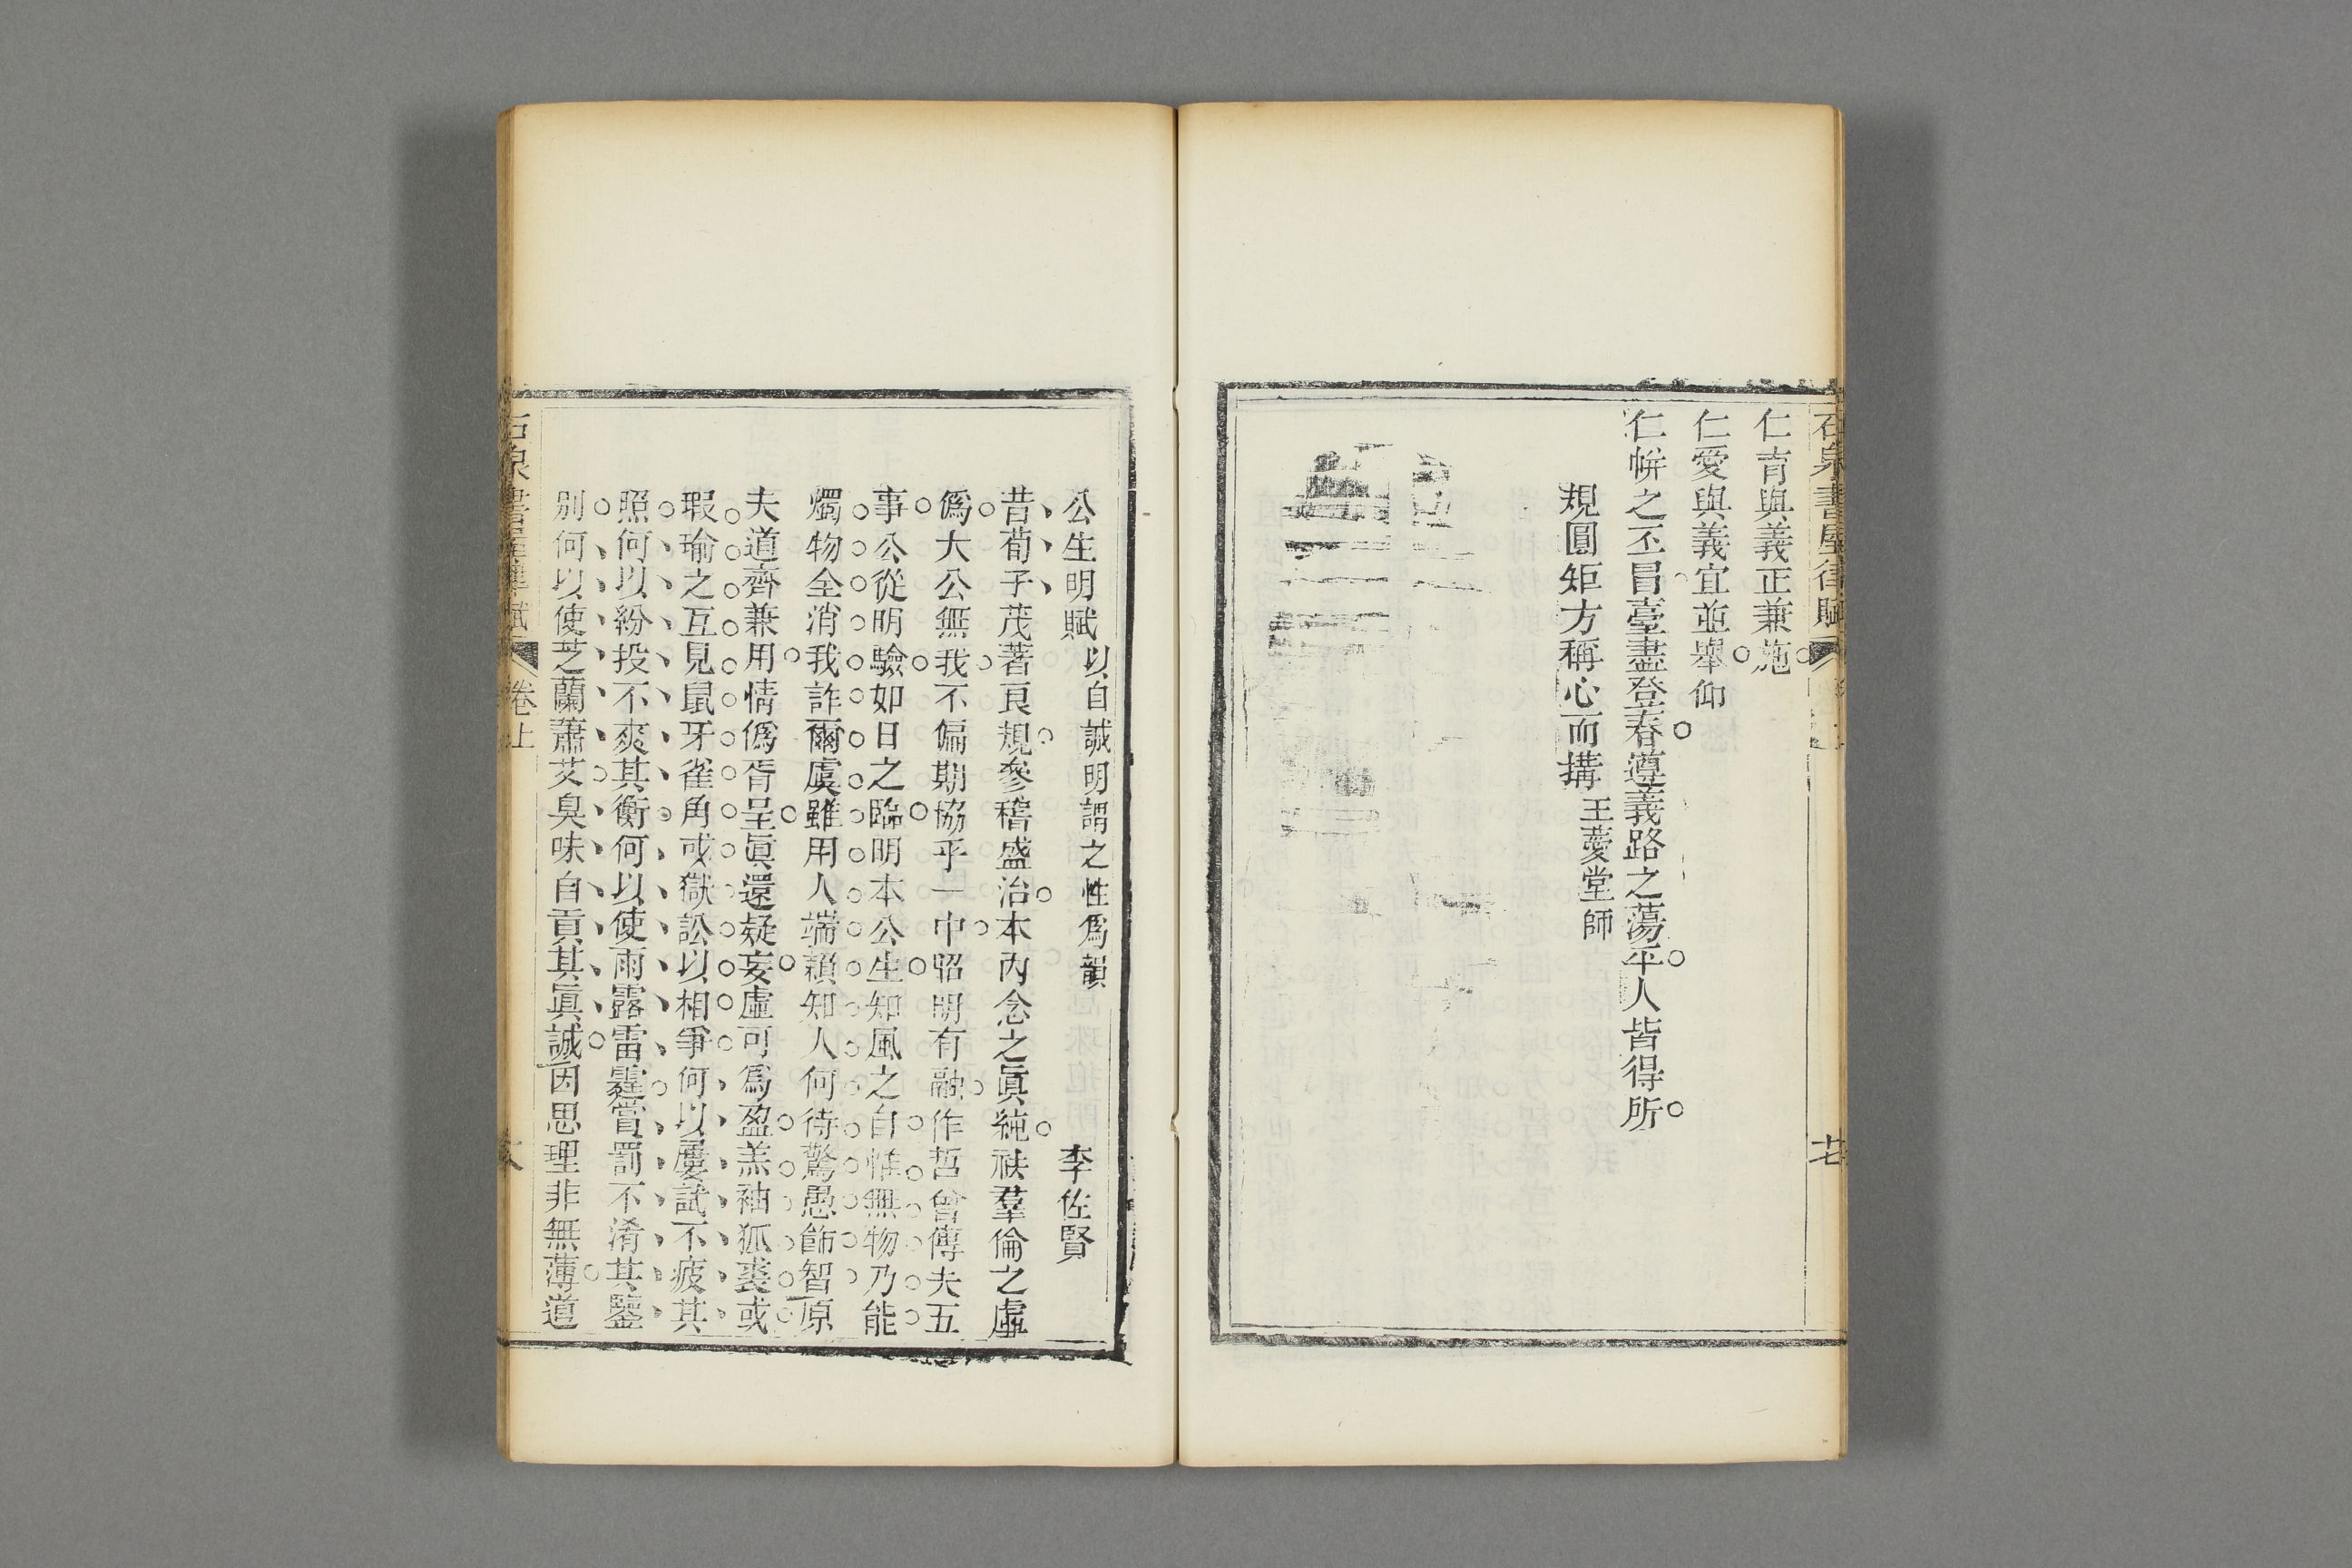 石泉書屋律賦
七
仁育與義正兼施
仁愛與義宜並舉仰
仁帡之丕冒臺盡登春遵義路之蕩平人皆得所
規圓矩方稱心而搆 王薆堂師
公生明賦 以自誠明謂之性爲韻 李佐賢
昔荀子茂著良規參稽盛治本內念之眞純祛羣倫之虛
僞大公無我不偏期協乎一中昭明有融作哲曾傳夫五
事公從明驗如日之臨明本公生知風之自惟無物乃能
燭物全消我詐爾虞雖用人端賴知人何待驚愚飾智原
夫道齊兼用情僞胥呈眞還疑妄虛可爲盈羔袖狐裘或
瑕瑜之互見鼠牙雀角或獄訟以相爭何以屢試不疲其
照何以紛投不爽其衡何以使雨露雷霆賞罰不淆其鑒
別何以使芝蘭蕭艾臭味自貢其眞誠因思理非無薄道
石泉書屋律賦 卷上